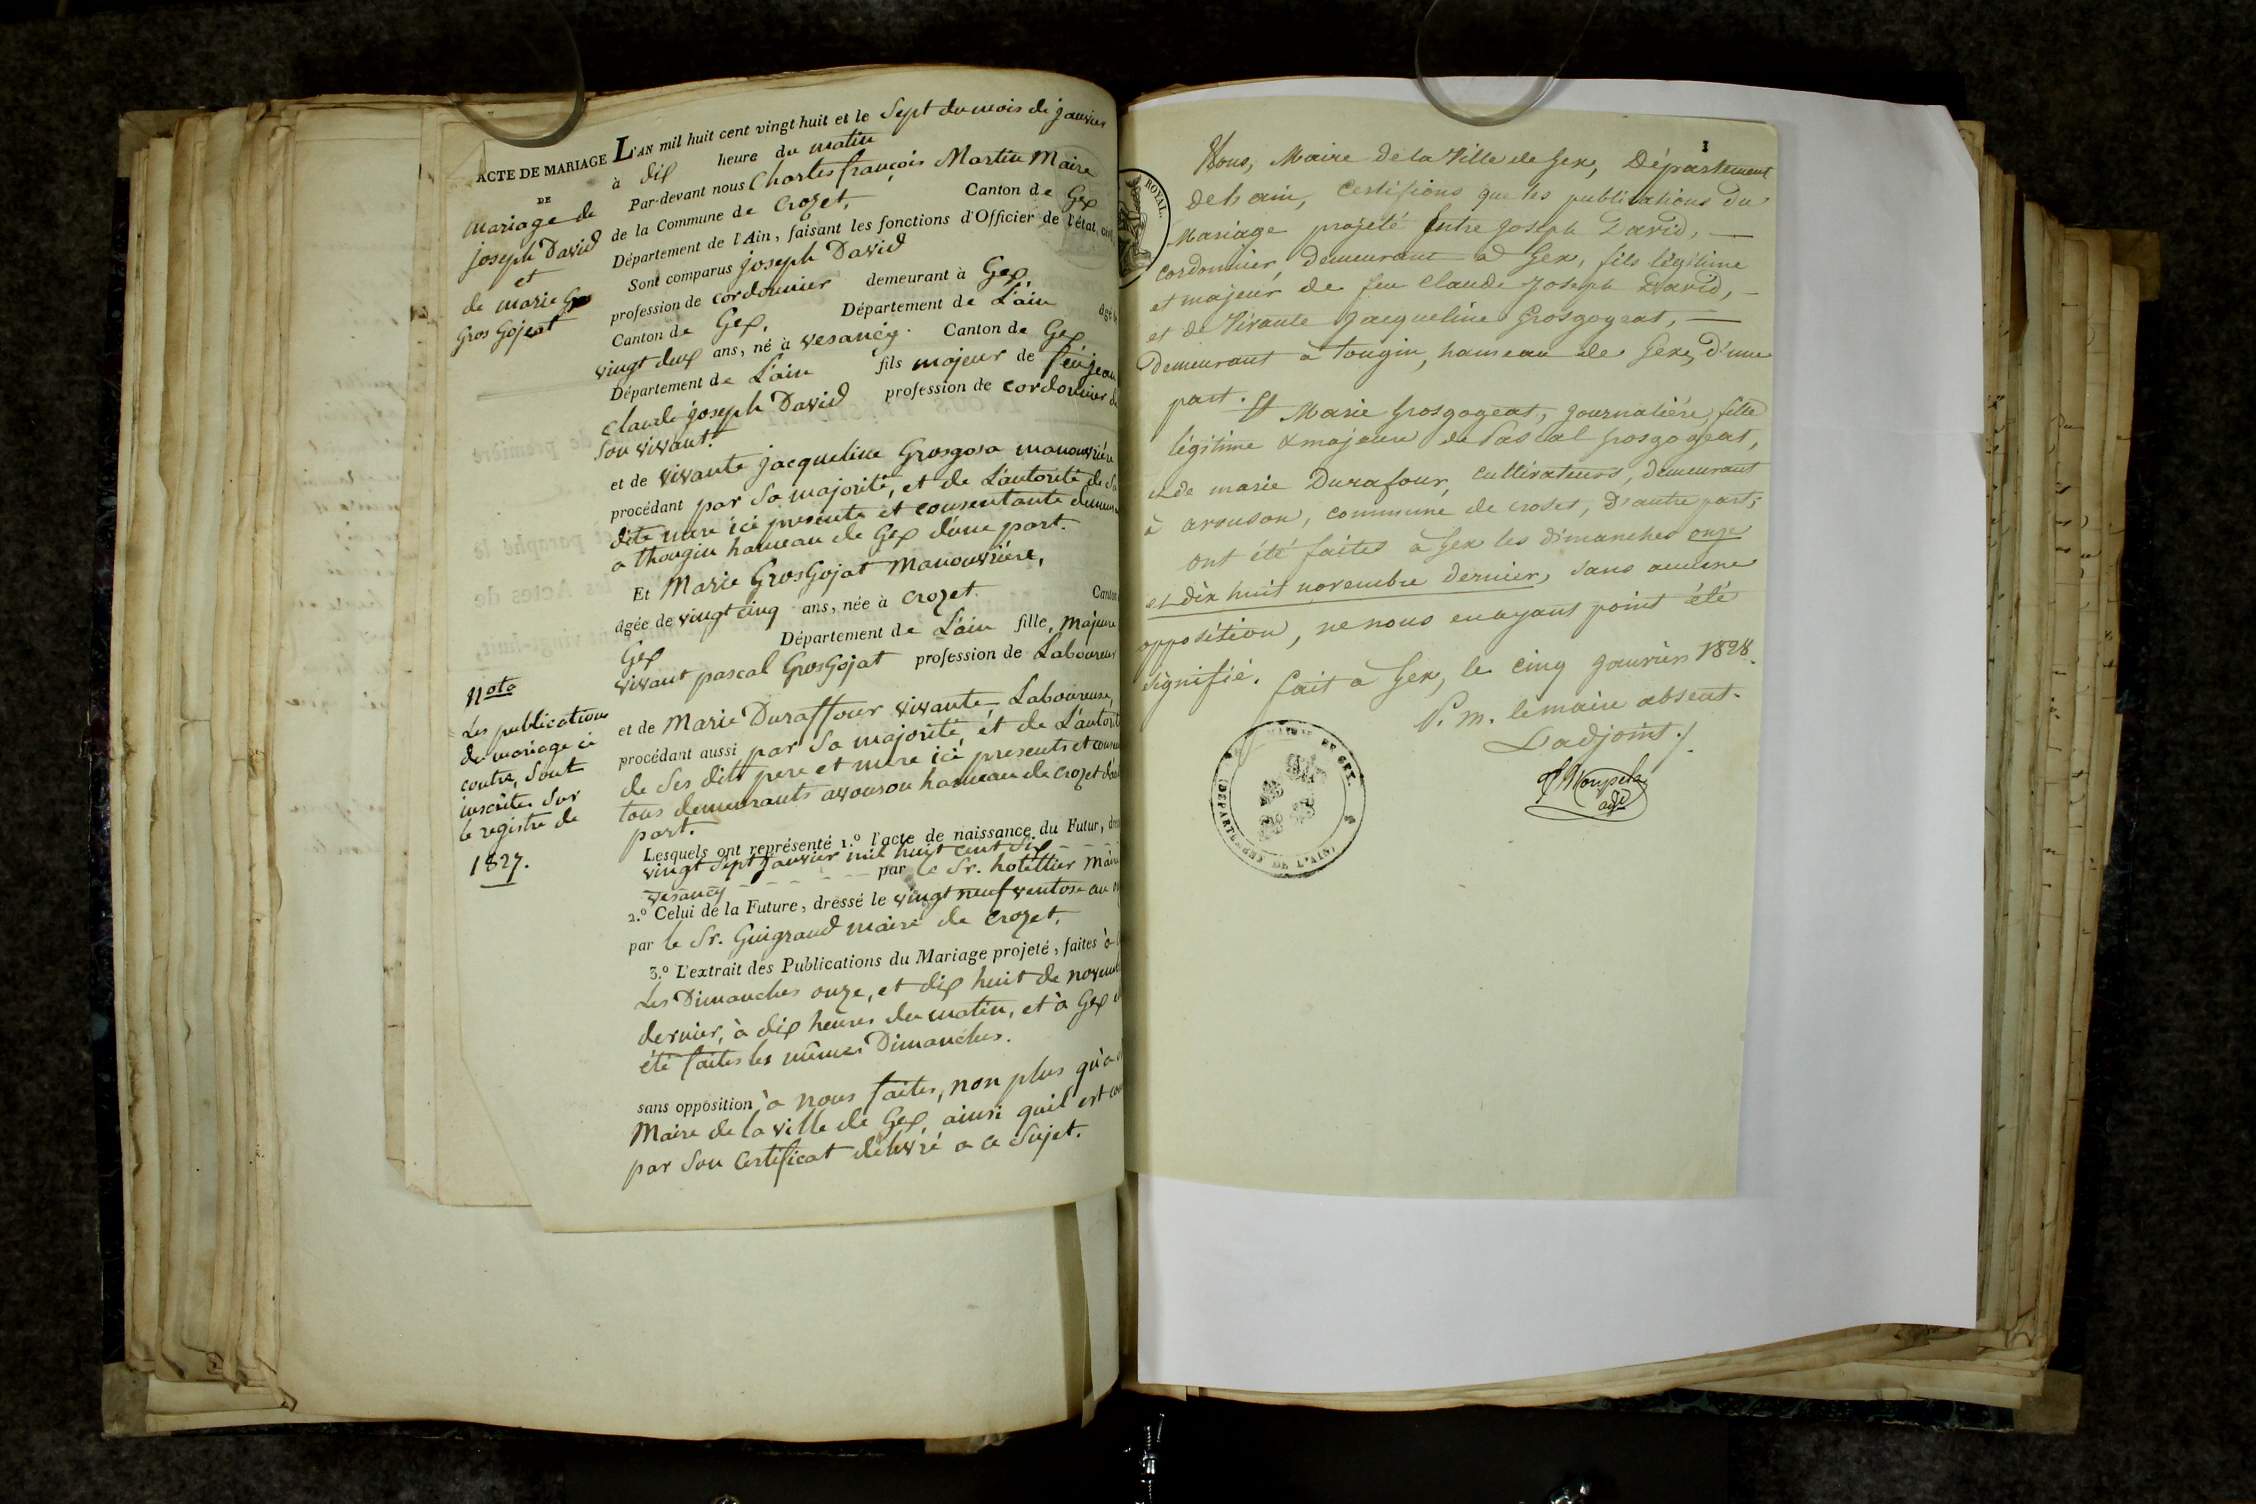 ACTE DE MARIAGE
DE
Mariage de
joseph David
et
de marie
Gros Gojeat
Note
Les publications
de mariage ci
contre, sont
inscrites sur
le registre de
1827.
L'AN mil huit cent vingt huit et le Sept du mois de janvier
à dix heure du matin
Par-devant nous Charles françois Martin Maire
de la Commune de Crozet, Canton de Gex
Département de l'Ain, faisant les fonctions d'Officier de l'état civil
Sont comparus joseph David
profession de cordonnier demeurant à Gex
Canton de Gex, Département de L'ain âgé de
vingt deux ans, né à vesancy. Canton de Gex
Département de L'ain fils majeur de feu jean
claude joseph David profession de cordonnier de
Son vivant.
et de vivante jacqueline Grosgoja manouvrière
procédant par Sa majorité, et de L'autorité de Sa
dite mere ici presente et consentante
a thougin hameau de Gex d'une part.
Et Marie GrosGojat Manouvrière,
âgée de vingt cinq ans, née à Crozet. Canton
Gex Département de L'ain fille, majeure
vivant pascal GrosGojat profession de Laboureur
et de Marie Duraffour vivante, Laboureuse,
procédant aussi par Sa majorité, et de L'autorité
de Ses dits pere et mere ici presents et
tous demeurants avouson hameau de crozet
part.
Lesquels ont représenté 1.º l'acte de naissance du Futur,
vingt Sept janvier mil huit cent Six
vesancy par le Sr. hotellier
2.º Celui de la Future, dressé le vingt neuf ventose an
par le Sr. Guigraud maire de Crozet.
3.º L'extrait des Publications du Mariage projeté, faites à
Les Dimanches onze, et dix huit de
dernier, à dix heures du matin, et à Gex
été faites les mêmes Dimanches.
sans opposition à nous faites, non plus qu'a
Maire de la ville de Gex, ainsi quil est
par Son Certificat délivré a ce Sujet.
1
ROYAL.
Nous, Maire de la Ville de Gex, Département
de l'ain, Certifions que les publications du
Mariage projeté Entre Joseph David, —
cordonnier demeurant à Gex, fils légitime
et majeur de feu Claude Joseph David, —
et de Vivante Jacqueline Grosgogeat, —
Demeurant à Tougin, hameau de Gex, D'une
part. Et Marie Grosgogeat, journalière, fille
légitime & majeure de Pascal Grosgogeat,
et de marie Durafour, cultivateurs, demeurant
à avouson, commune de crozet, D'autre part;
ont été faites à Gex les dimanches onze
et dix huit novembre dernier, sans aucune
opposition, ne nous en ayant point été
signifié. fait à Gex, le cinq janvier 1828.
P. m. le maire absent.
L'adjoint /.
adj
MAIRIE DE GEX.
(DÉPARTEMENT DE L'AIN)